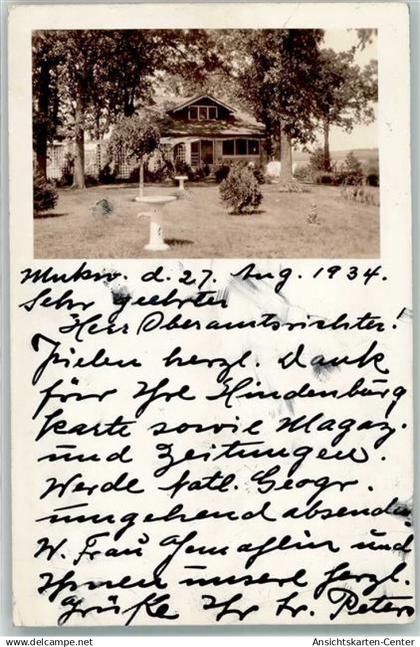 Mukw. d. 27. Aug. 1934.
Sehr geehrter
Herr Oberamtsrichter!
Vielen herzl. Dank
für Ihre Hindenburg
karte sowie Magaz.
und Zeitungen.
Werde Natl. Geogr.
umgehend absenden
W. Frau Gemahlin und
Ihnen unsere herzl.
Grüße Ihr Fr. Peter
Ansichtskarten-Center